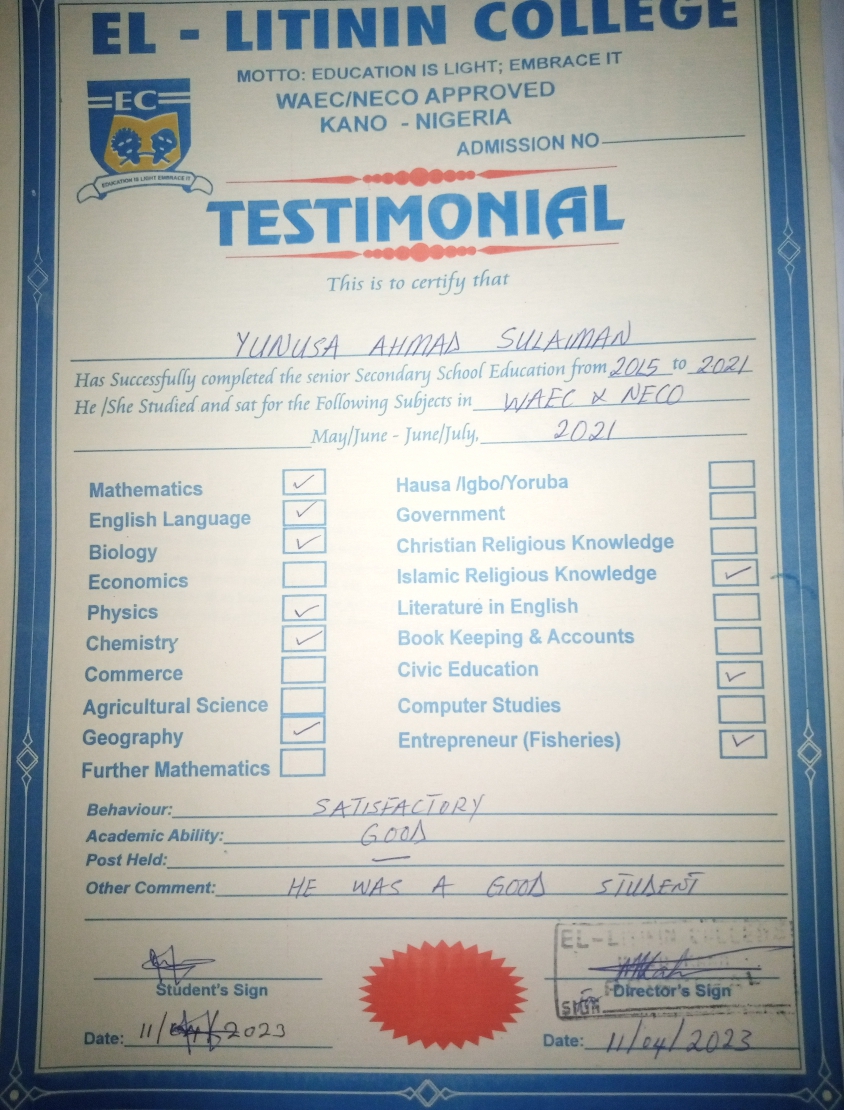 EL - LITININ COLLEGE
MOTTO: EDUCATION IS LIGHT; EMBRACE IT
WAEC/NECO APPROVED
KANO - NIGERIA
ADMISSION NO
EC
EDUCATION IS LIGHT EMBRACE IT
TESTIMONIAL
This is to certify that
YUNUSA AHMAD SULAIMAN
Has Successfully completed the senior Secondary School Education from 2015 to 2021
He /She Studied and sat for the Following Subjects in WAEC & NECO
May/June - June/July, 2021
Mathematics ✓
English Language ✓
Biology ✓
Economics
Physics ✓
Chemistry ✓
Commerce
Agricultural Science
Geography ✓
Further Mathematics
Hausa /Igbo/Yoruba
Government
Christian Religious Knowledge
Islamic Religious Knowledge ✓
Literature in English
Book Keeping & Accounts
Civic Education ✓
Computer Studies
Entrepreneur (Fisheries) ✓
Behaviour: SATISFACTORY
Academic Ability: GOOD
Post Held: —
Other Comment: HE WAS A GOOD STUDENT
EL-LITININ COLLEGE
Student's Sign
Director's Sign
SIGN
Date: 11/ 2023
Date: 11/04/2023